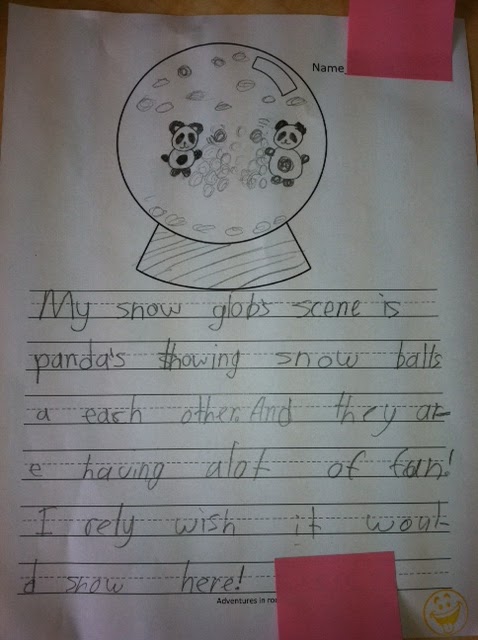 Name
My snow glob's scene is
panda's thowing snow balls
a each other. And they ar-
e having alot of fun!
I rely wish it woul-
d snow here!
Adventures in roo